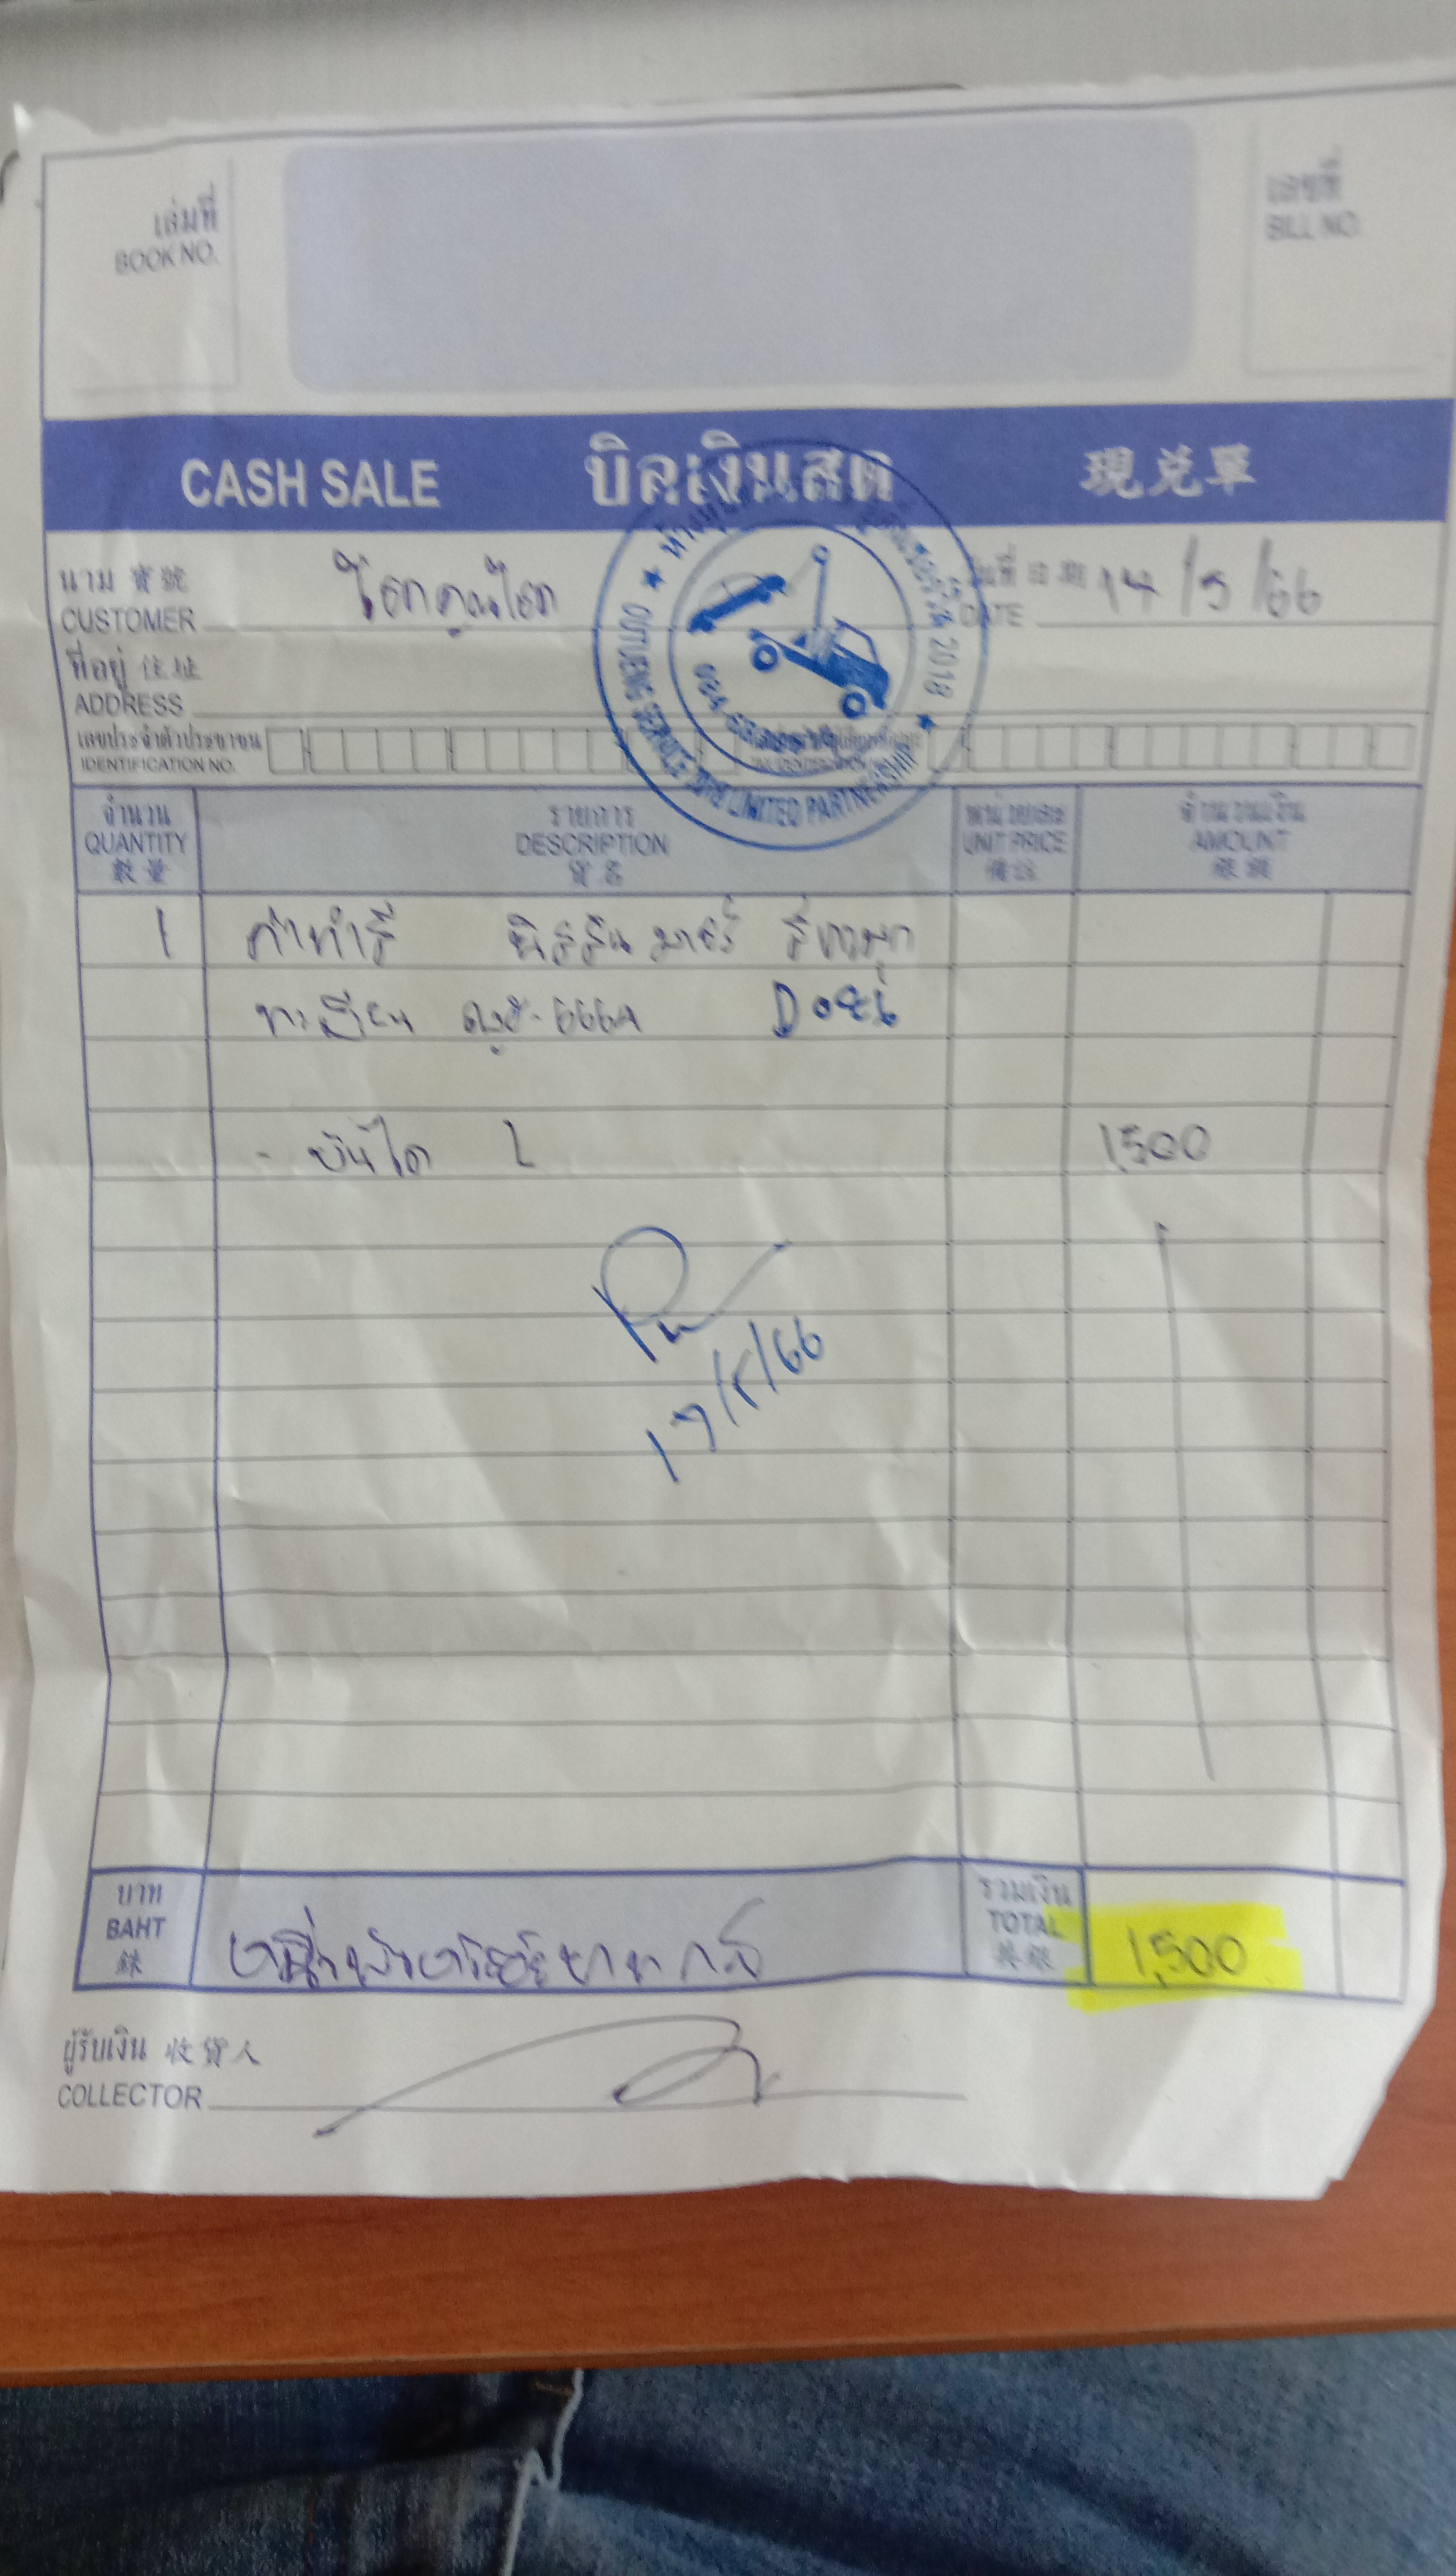 เล่มที่
BOOK NO.
เลขที่
BILL NO.
CASH SALE บิลเงินสด 現兑單
นาม 寶號
CUSTOMER โชคคูณโชค
วันที่ 日期
DATE 14/5/66
ที่อยู่ 住址
ADDRESS
เลขประจำตัวประชาชน
IDENTIFICATION NO.
2018
OUTUENG SERVICE 2018 LIMITED PARTNERSHIP
จำนวน
QUANTITY
數量
รายการ
DESCRIPTION
貨名
หน่วยละ
UNIT PRICE
備註
จำนวนเงิน
AMOUNT
銀額
1 ค่าทำสี นิสสัน มาร์ช สีขาวมุก
ทะเบียน
- บันได L 1,500
17/5/66
บาท
BAHT
銖
หนึ่งพันห้าร้อยบาท
รวมเงิน
TOTAL
共銀
1,500
ผู้รับเงิน 收貨人
COLLECTOR